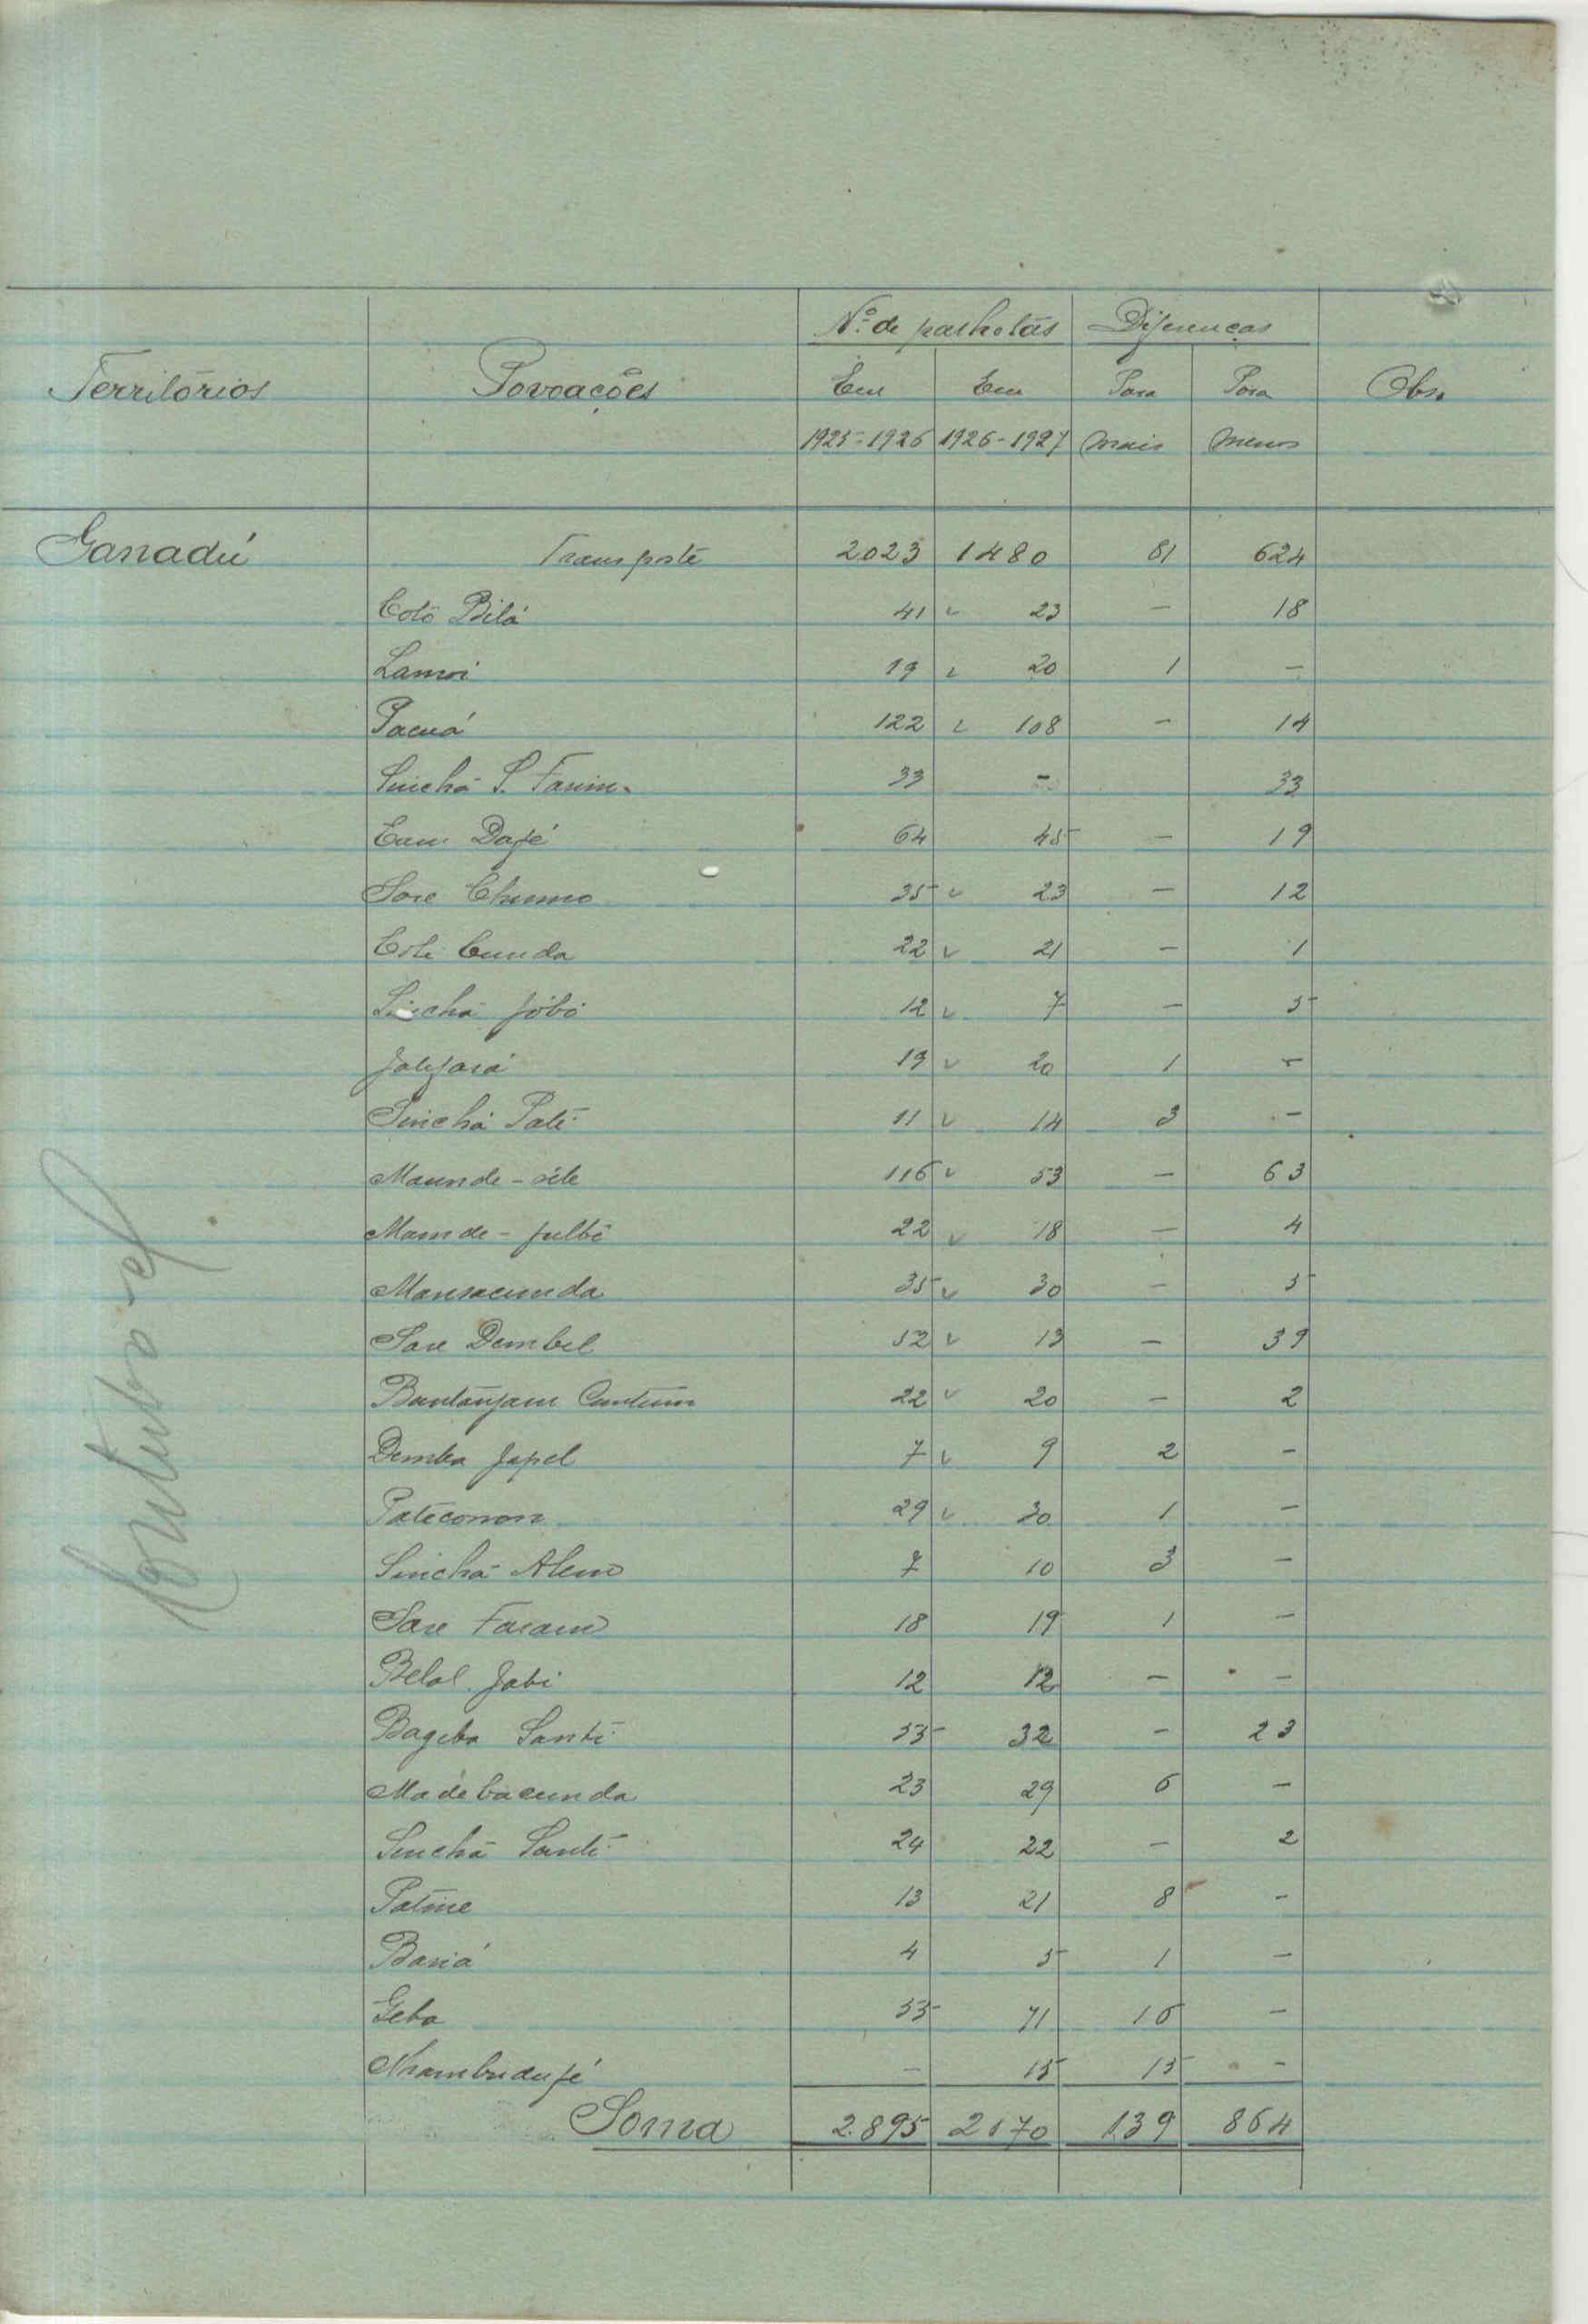 Nº de palhotas Diferenças
Territórios Povoações Em Em Para Para Obs.
1925-1926 1926-1927 mais menos
Ganadú Transporte 2023 1480 81 624
Colô Bilá 41 23 - 18
Lamoi 19 20 1 -
Pacuá 122 108 - 14
Sinchã S. Farim 33 - 33
Cam Dafé 64 45 - 19
Sare Chumo 35 23 - 12
Coli Cunda 22 21 - 1
Sinchã Jobó 12 7 - 5
Jalifará 19 20 1 -
Sinchã Paté 11 14 3 -
Maunde-séle 116 53 - 63
Mamde-fulbé 22 18 - 4
Mansacunda 35 30 - 5
Sare Dembel 52 13 - 39
Bantanjam Cuntum 22 20 - 2
Demba Japel 7 9 2 -
Patéconon 29 30 1 -
Sinchã Aleno 7 10 3 -
Sare Facam 18 19 1 -
Belal Jabi 12 12 - -
Bageba Santi 55 32 - 23
Madebacunda 23 29 6 -
Sinchã Santi 24 22 - 2
Patine 13 21 8 -
Bariá 4 5 1 -
Geba 55 71 16 -
Nhambudufé - 15 15 -
Soma 2.895 2170 139 864